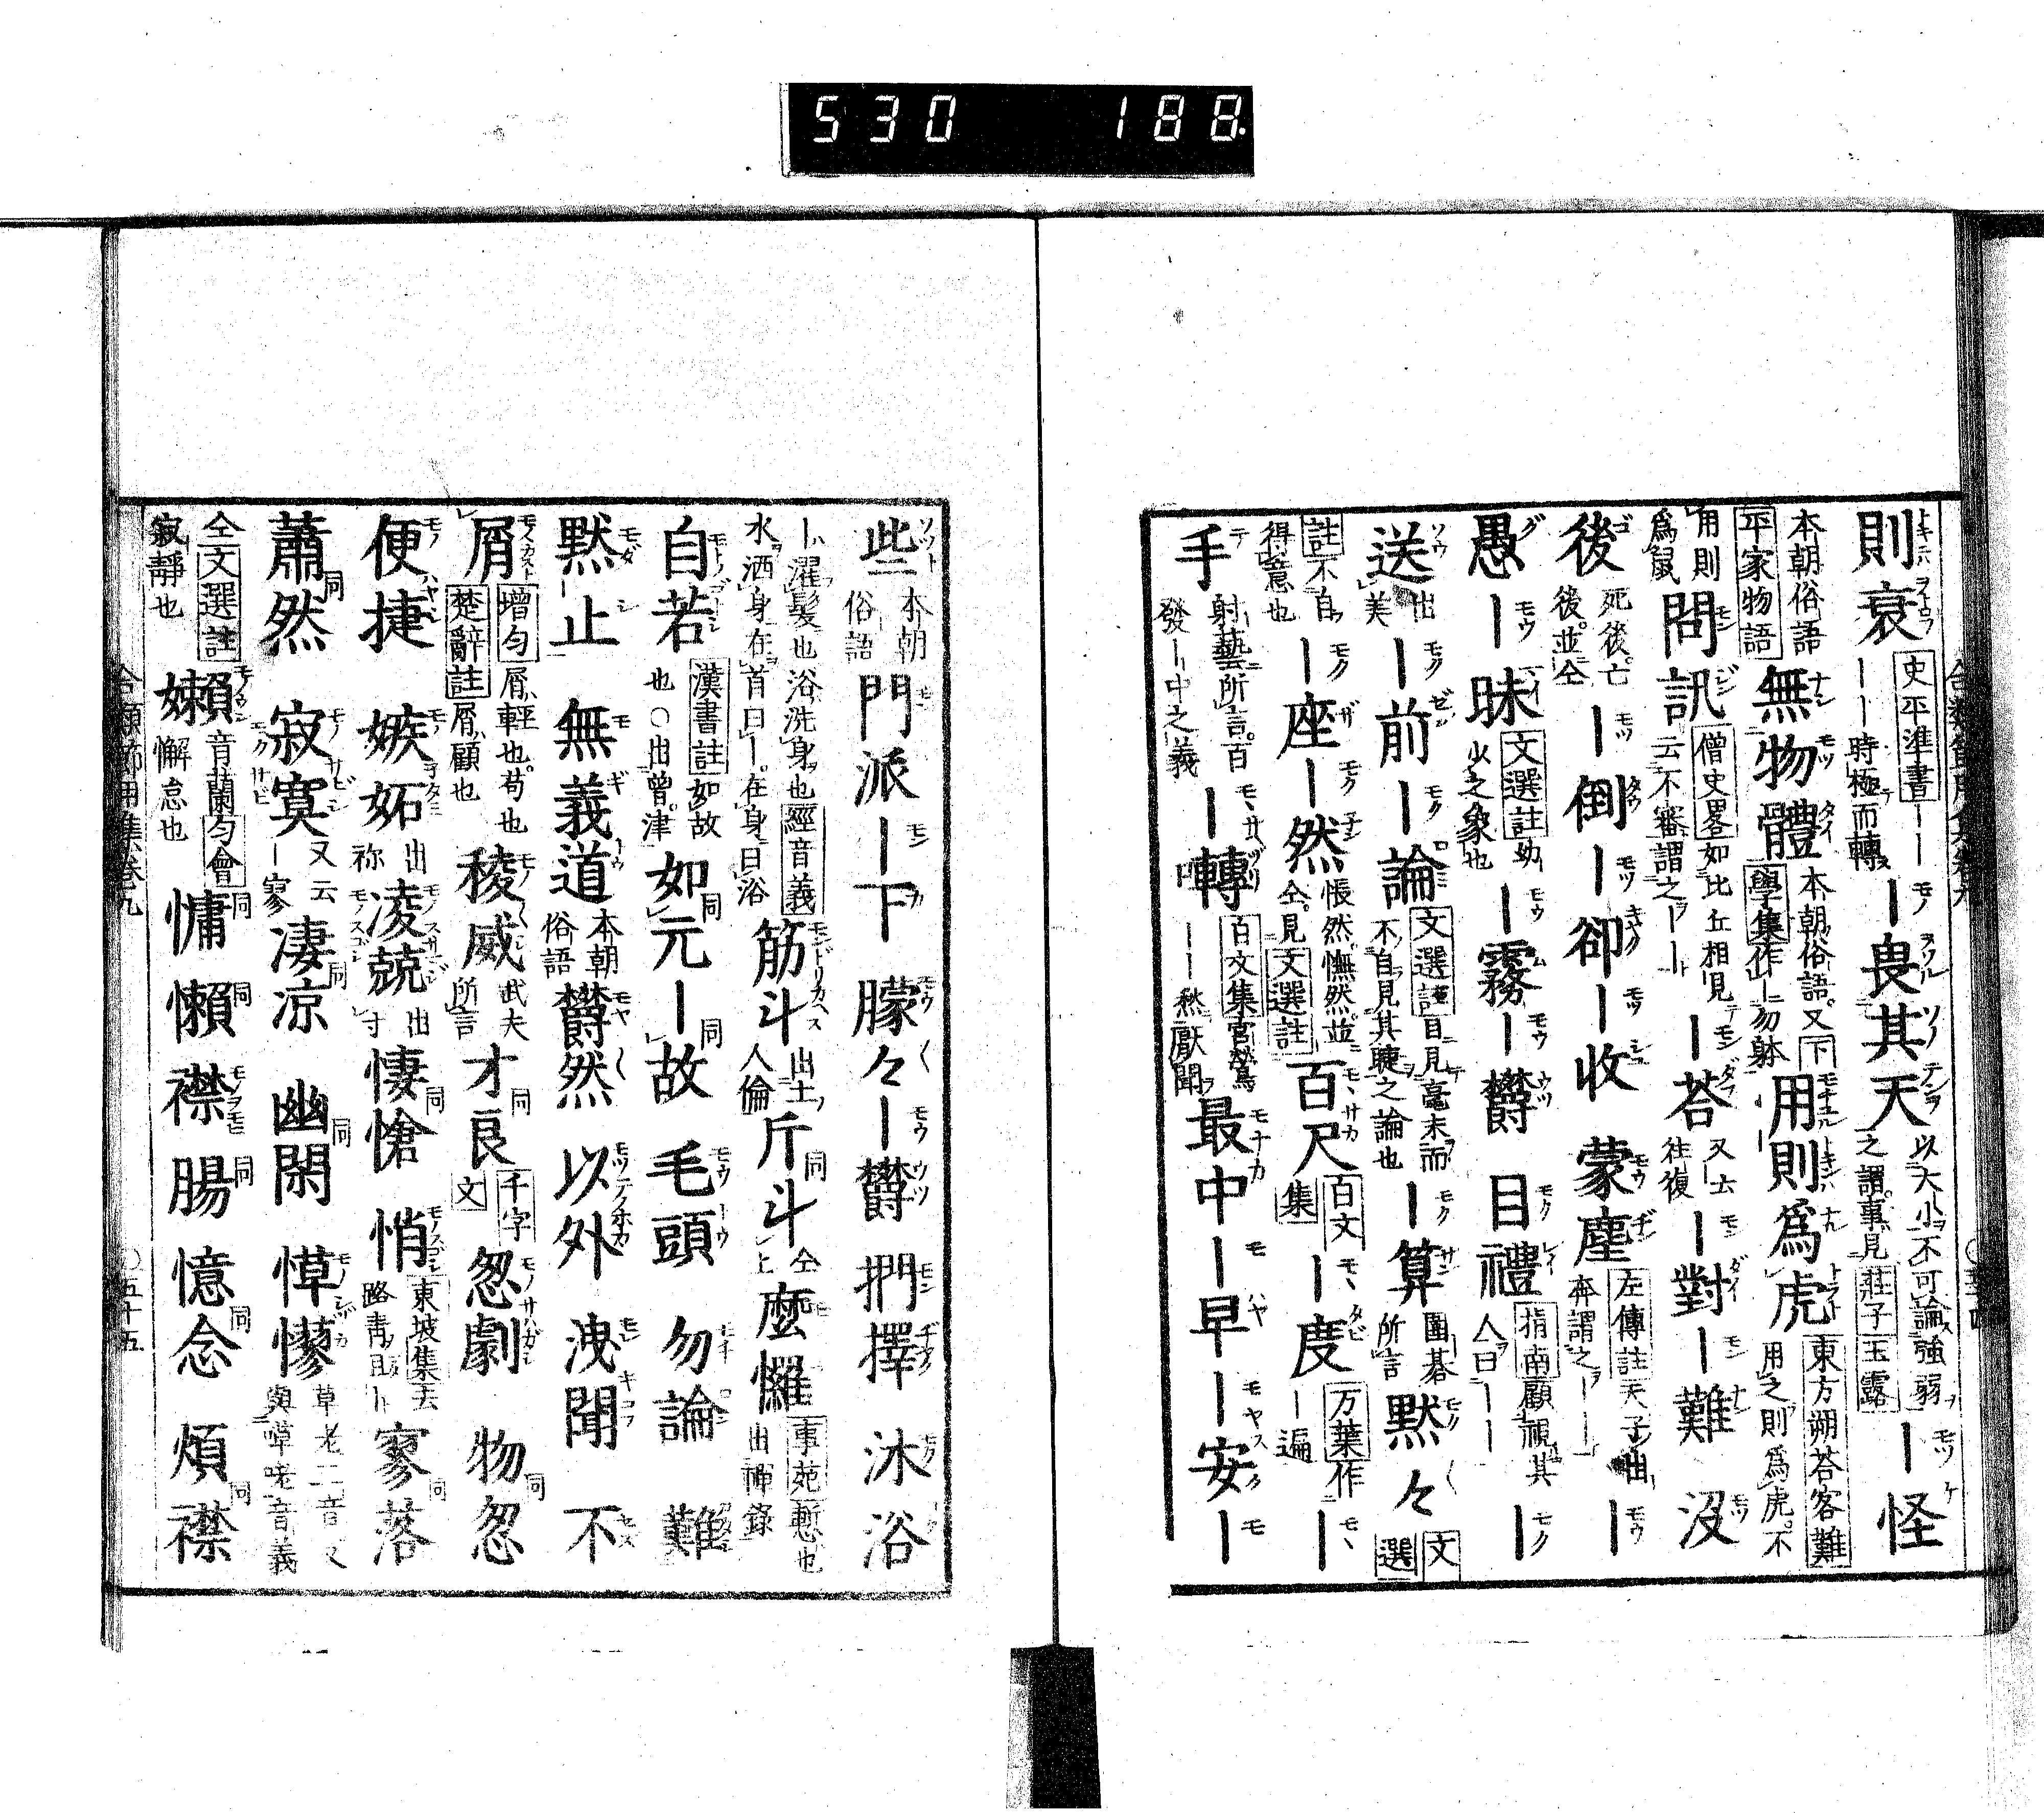 530 188
則衰 史平準書——時極而轉 —畏其天 以大小不可論強弱之謂事見莊子玉露 —怪
本朝俗語平家物語 無物體 本朝俗語又下學集作—勿躰 用則爲虎 東方朔荅客難用之則爲虎不
用則爲鼠 問訊 僧史畧如比丘相見云不審謂之—— —荅 又云往復 —對 —難 沒
後 死後亡後並仝 —倒 —卻 —收 蒙塵 左傳註天子出奔謂之—— —
愚 —昧 文選註幼少之象也 —霧 —欝 目禮 指南顧視其人曰—— —
送 出美 —前 —論 文選註目見毫末而不自見其睫之論也 —算 圍碁所言 默々 文選
註不自得意也 —座 —然 悵然憮然並仝見文選註 百尺 百文集 —度 万葉作—遍 —
手 射藝所言百發—中之義 —轉 百文集宮鶯——愁厭聞 最中 —早 —安 —
合類節用集卷九
些 本朝俗語 門派 —下 朦々 —欝 捫擇 沐浴
—濯髮也浴洗身也經音義水洒身在首曰—在身曰浴 筋斗 出土人倫 斤斗 仝上 麼㦬 事苑慙也出禅錄
自若 漢書註如故也○出曾津 如元 —故 毛頭 勿論 難
黙止 無義道 本朝俗語 欝然 以外 洩聞 不
屑 增匀屑輕也苟也楚辭註屑顧也 稜威 武夫所言 才良 千字文 怱劇 物怱
便捷 嫉妬 出祢 凌兢 出寸 悽愴 悄 東坡集去路靑且— 寥落
蕭然 寂寞 又云—寥 凄凉 幽閑 愺㦖 草老二音又與嘽咾音義
仝文選註寂靜也 嬾 音蘭匀會懈怠也 慵 懶 襟 腸 憶念 煩襟
合類節用集卷九 ○五十五